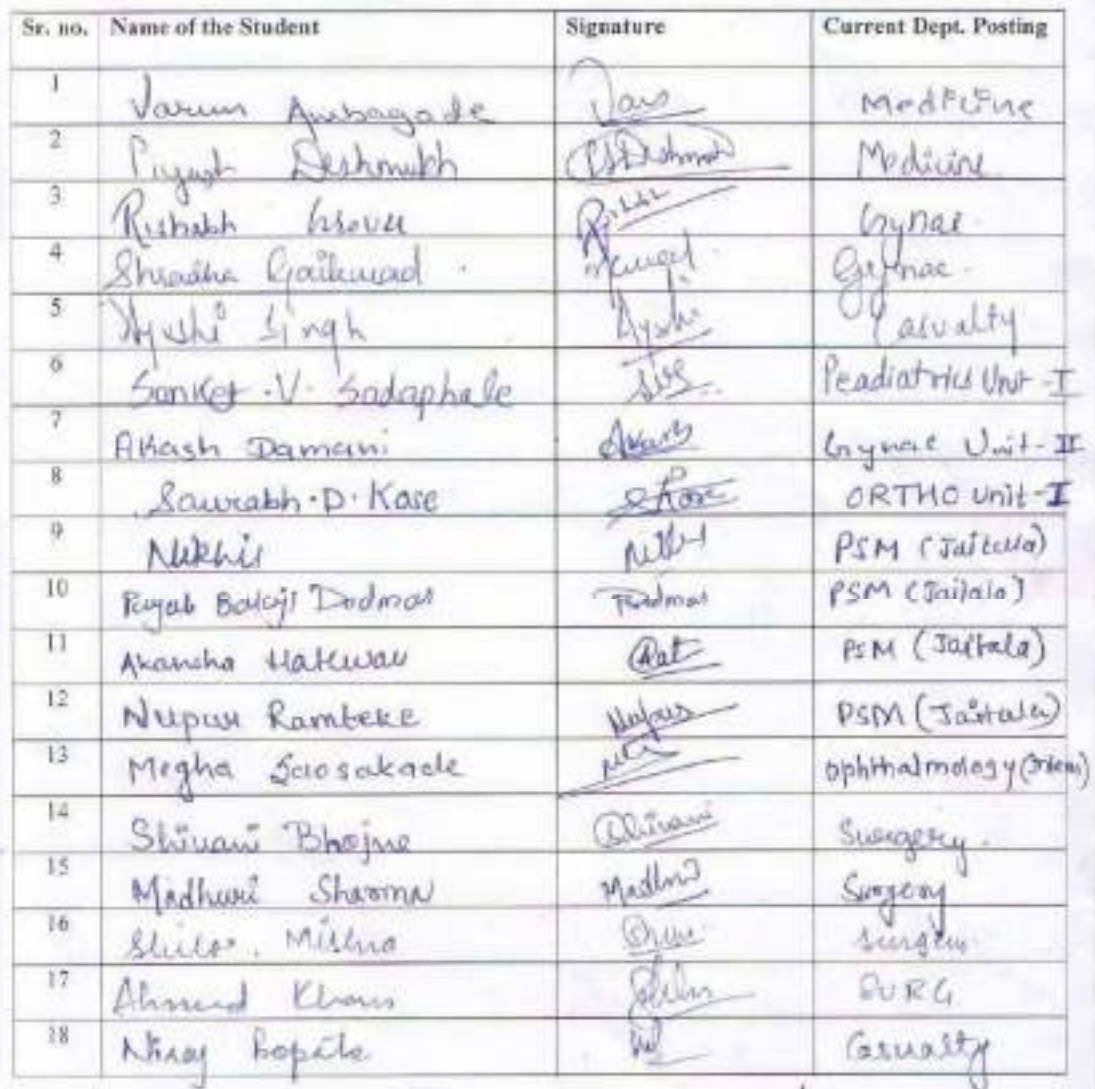 Sr. no. Name of the Student Signature Current Dept. Posting
1 Varun Ambagade Medicine
2 Piyush Deshmukh PSDeshmukh Medicine
3 Rishabh Grover Gynae.
4 Shradha Gaikwad. Gynae.
5 Ayushi Singh Ayshi Casualty
6 Sanket .V. Sadaphale Peadiatrics Unit - I
7 Akash Damani Akash Gynae Unit - II
8 Saurabh .D. Kase SKase ORTHO Unit - I
9 Nikhil PSM (Jaitala)
10 Balaji Dodmal PSM (Jaitala)
11 Akansha PSM (Jaitala)
12 Nupur Ramteke Nupur PSM (Jaitala)
13 Megha Saosakade ophthalmology
14 Shivani Bhojne Shivani Surgery.
15 Madhuri Sharma Madhuri Surgery
16 Mishra Surgery
17 Ahmed Khan SURG
18 Niraj Bopile Casualty